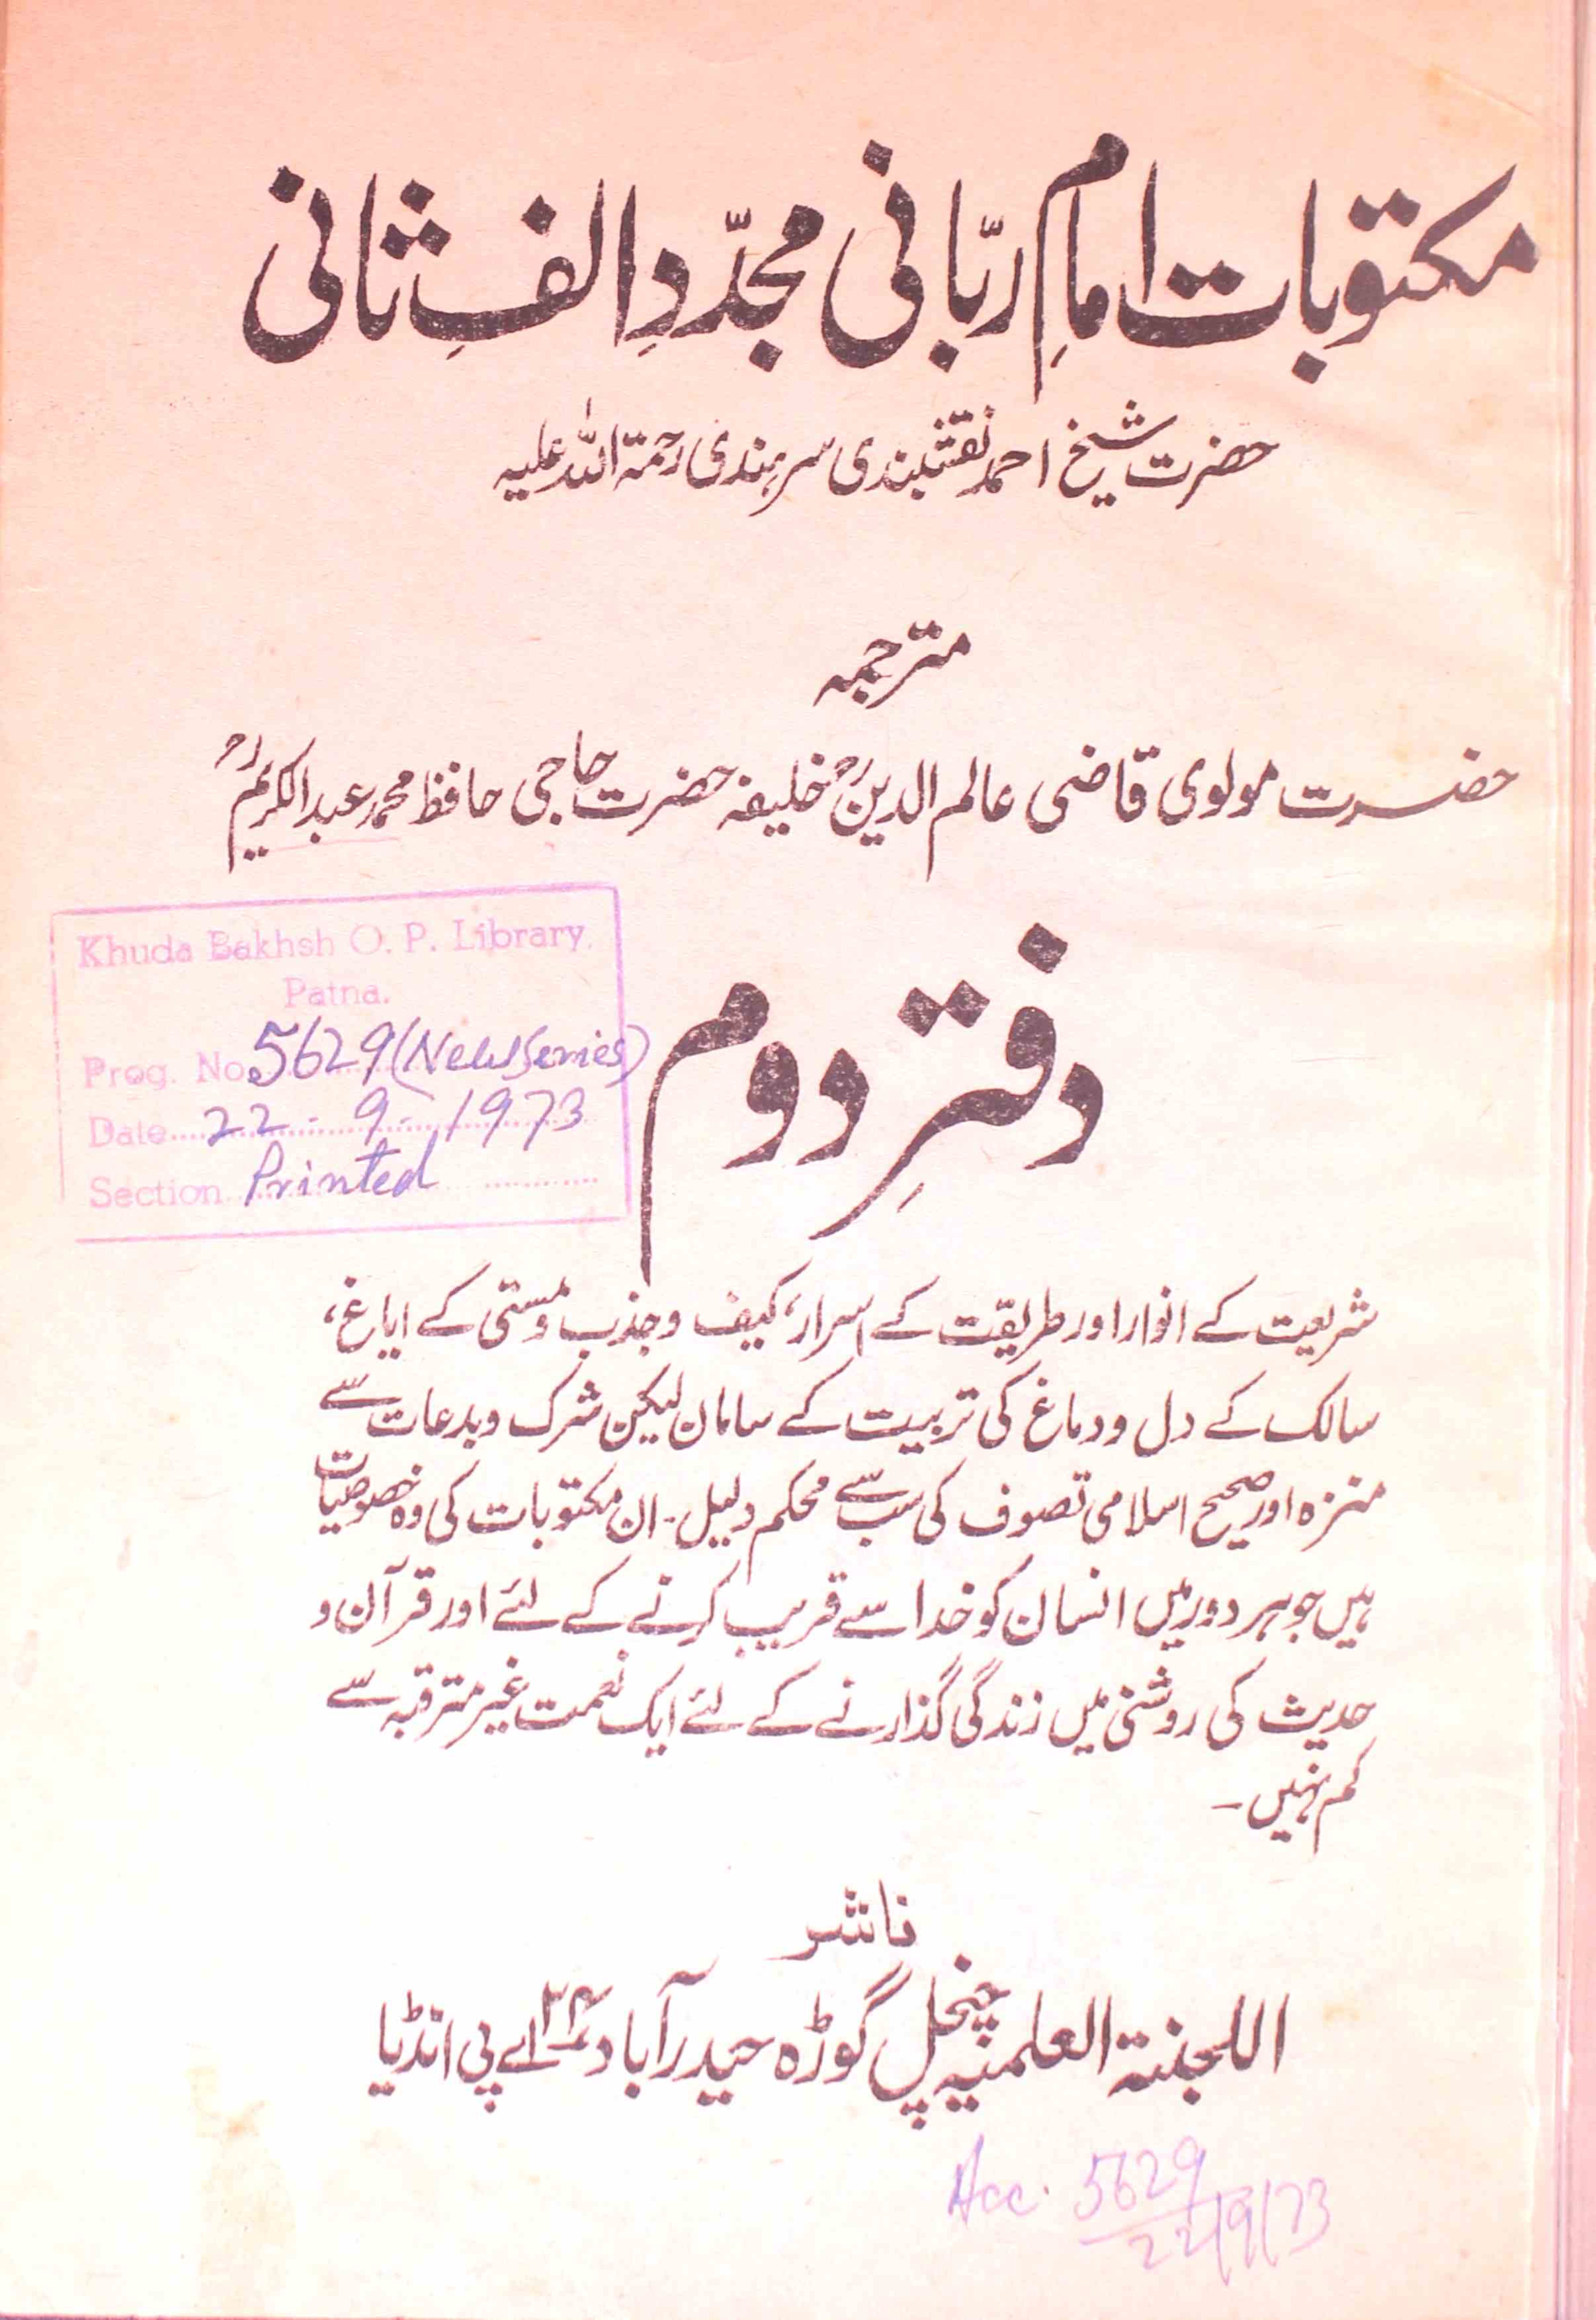 مکتوبات امامِ ربّانی مجدّدِ الفِ ثانی
حضرت شیخ احمد نقشبندی سرہندی رحمۃ اللہ علیہ
مترجمہ
حضرت مولوی قاضی عالم الدینؒ خلیفہ حضرت حاجی حافظ محمد عبدالکریمؒ
Khuda Bakhsh O. P. Library
Patna.
Prog. No. 5629 (New Series)
Date 22-9-1973
Section Printed
دفترِ دوم
شریعت کے انوار اور طریقت کے اسرار، کیف و جذب و مستی کے ایاغ،
سالک کے دل و دماغ کی تربیت کے سامان لیکن شرک و بدعات سے
منزہ اور صحیح اسلامی تصوف کی سب سے محکم دلیل۔ ان مکتوبات کی وہ خصوصیات
ہیں جو ہر دور میں انسان کو خدا سے قریب کرنے کے لئے اور قرآن و
حدیث کی روشنی میں زندگی گذارنے کے لئے ایک نعمت غیر مترقبہ سے
کم نہیں۔
ناشر
اللجنتہ العلمیہ چنچل گوڑہ حیدرآباد ۲۴ اے پی انڈیا
Acc. 5629
22/9/73